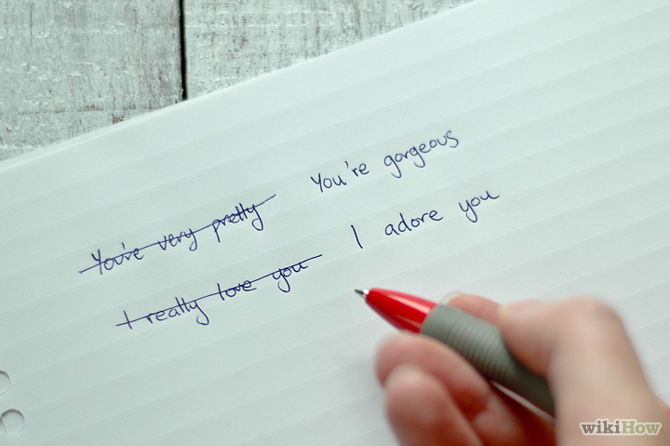 You're very pretty You're gorgeous
I really love you I adore you
wikiHow